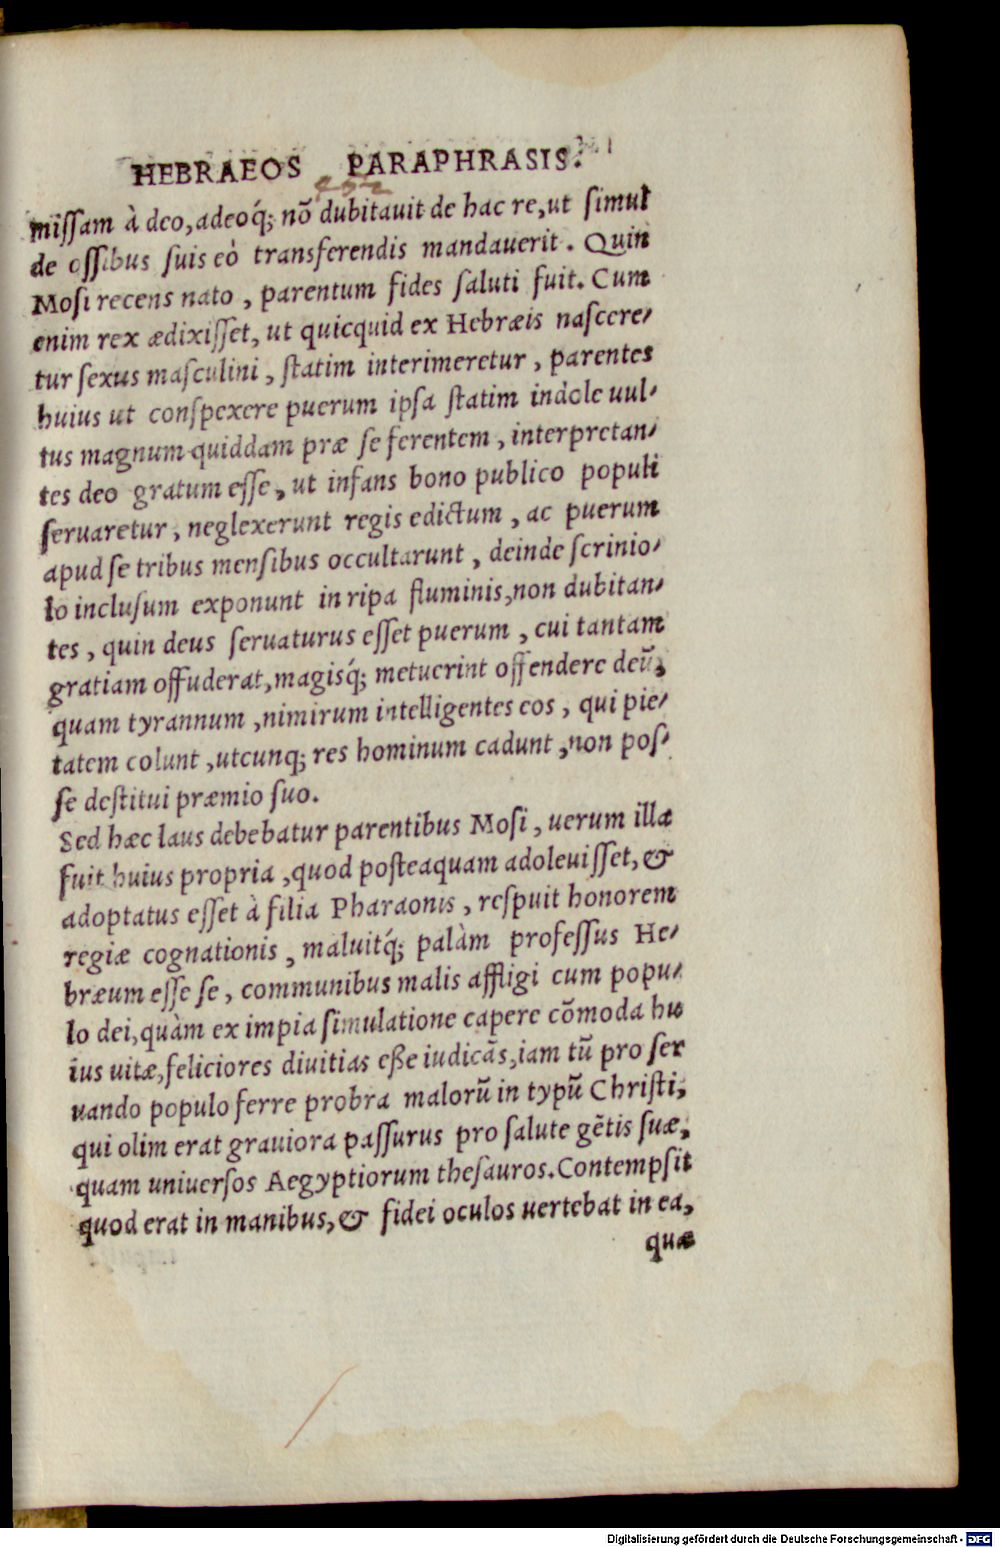 HEBRAEOS PARAPHRASIS.
miſſam à deo, adeoq́; nõ dubitauit de hac re, ut ſimul
de oſſibus ſuis eò tranſferendis mandauerit. Quin
Moſi recens nato, parentum fides ſaluti fuit. Cum
enim rex ædixiſſet, ut quicquid ex Hebræis naſcere⸗
tur ſexus maſculini, ſtatim interimeretur, parentes
huius ut conſpexere puerum ipſa ſtatim indole uul⸗
tus magnum quiddam præ ſe ferentem, interpretan⸗
tes deo gratum eſſe, ut infans bono publico populi
ſeruaretur, neglexerunt regis edictum, ac puerum
apud ſe tribus menſibus occultarunt, deinde ſcrinio⸗
lo incluſum exponunt in ripa fluminis, non dubitan⸗
tes, quin deus ſeruaturus eſſet puerum, cui tantam
gratiam offuderat, magisq́; metuerint offendere deũ,
quam tyrannum, nimirum intelligentes eos, qui pie⸗
tatem colunt, utcunq; res hominum cadunt, non poſ⸗
ſe deſtitui præmio ſuo.
Sed hæc laus debebatur parentibus Moſi, uerum illa
fuit huius propria, quod poſteaquam adoleuiſſet, &
adoptatus eſſet à filia Pharaonis, reſpuit honorem
regiæ cognationis, maluitq́; palàm profeſſus He⸗
bræum eſſe ſe, communibus malis affligi cum popu⸗
lo dei, quàm ex impia ſimulatione capere cõmoda hu
ius uitæ, feliciores diuitias eße iudicãs, iam tũ pro ſer
uando populo ferre probra malorũ in typũ Chriſti,
qui olim erat grauiora paſſurus pro ſalute gẽtis ſuæ,
quam uniuerſos Aegyptiorum theſauros. Contempſit
quod erat in manibus, & fidei oculos uertebat in ea,
quæ
Digitalisierung gefördert durch die Deutsche Forschungsgemeinschaft - DFG